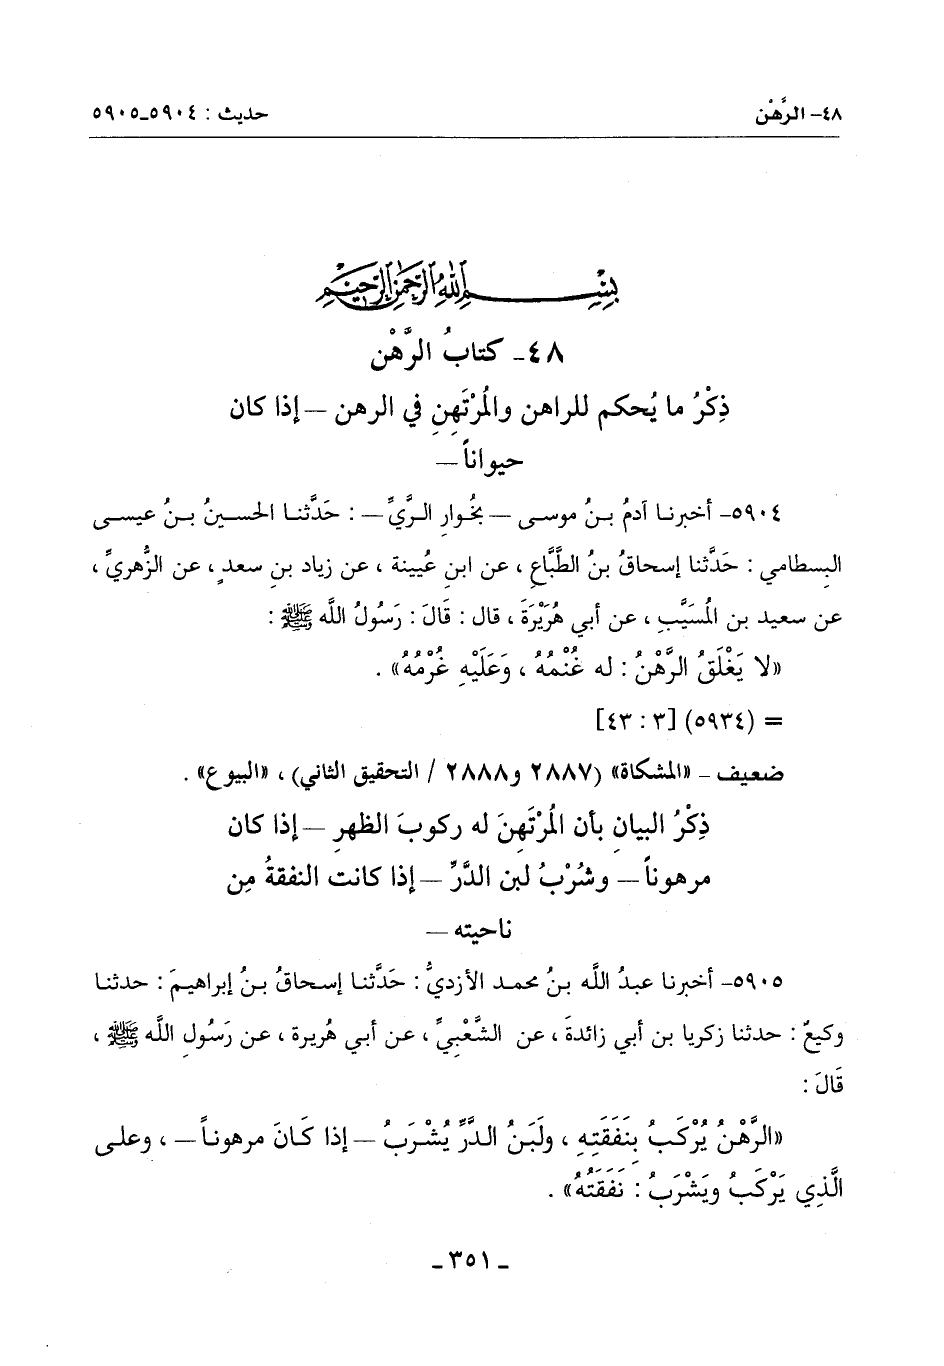 ٤٨- الرَّهْن
حديث : ٥٩٠٤-٥٩٠٥
بِسْمِ اللَّهِ الرَّحْمَنِ الرَّحِيمِ
٤٨- كتابُ الرَّهْن
ذِكْرُ ما يُحكم للراهن والمُرْتَهِنِ في الرهن – إذا كان
حيواناً –
٥٩٠٤- أخبرنا آدمُ بنُ موسى – بخُوارِ الرَّيِّ – : حَدَّثنا الحسينُ بنُ عيسى
البِسطامي : حَدَّثنا إسحاقُ بنُ الطَّبَّاعِ ، عن ابنِ عُيينة ، عن زياد بنِ سعدٍ ، عن الزُّهريِّ ،
عن سعيد بن المُسَيَّبِ ، عن أبي هُرَيْرَةَ ، قال : قَالَ : رَسُولُ اللَّه ﷺ :
«لا يَغْلَقُ الرَّهْنُ : له غُنْمُهُ ، وَعَلَيْهِ غُرْمُهُ» .
= (٥٩٣٤) [٣ : ٤٣]
ضعيف – «المشكاة» (٢٨٨٧ و٢٨٨٨ / التحقيق الثاني) ، «البيوع» .
ذِكْرُ البيانِ بأن المُرْتَهِنَ له ركوبَ الظهرِ – إذا كان
مرهوناً – وشُرْبُ لبن الدَّرِّ – إذا كانت النفقةُ مِن
ناحيته –
٥٩٠٥- أخبرنا عبدُ اللَّه بنُ محمد الأزديُّ : حَدَّثنا إسحاقُ بنُ إبراهيمَ : حدثنا
وكيعٌ : حدثنا زكريا بن أبي زائدةَ ، عن الشَّعْبِيِّ ، عن أبي هُريرة ، عن رَسُولِ اللَّه ﷺ ،
قَالَ :
«الرَّهْنُ يُرْكَبُ بِنَفَقَتِهِ ، ولَبَنُ الدَّرِّ يُشْرَبُ – إذا كَانَ مرهوناً – ، وعلى
الَّذِي يَرْكَبُ ويَشْرَبُ : نَفَقَتُهُ» .
- ٣٥١ -